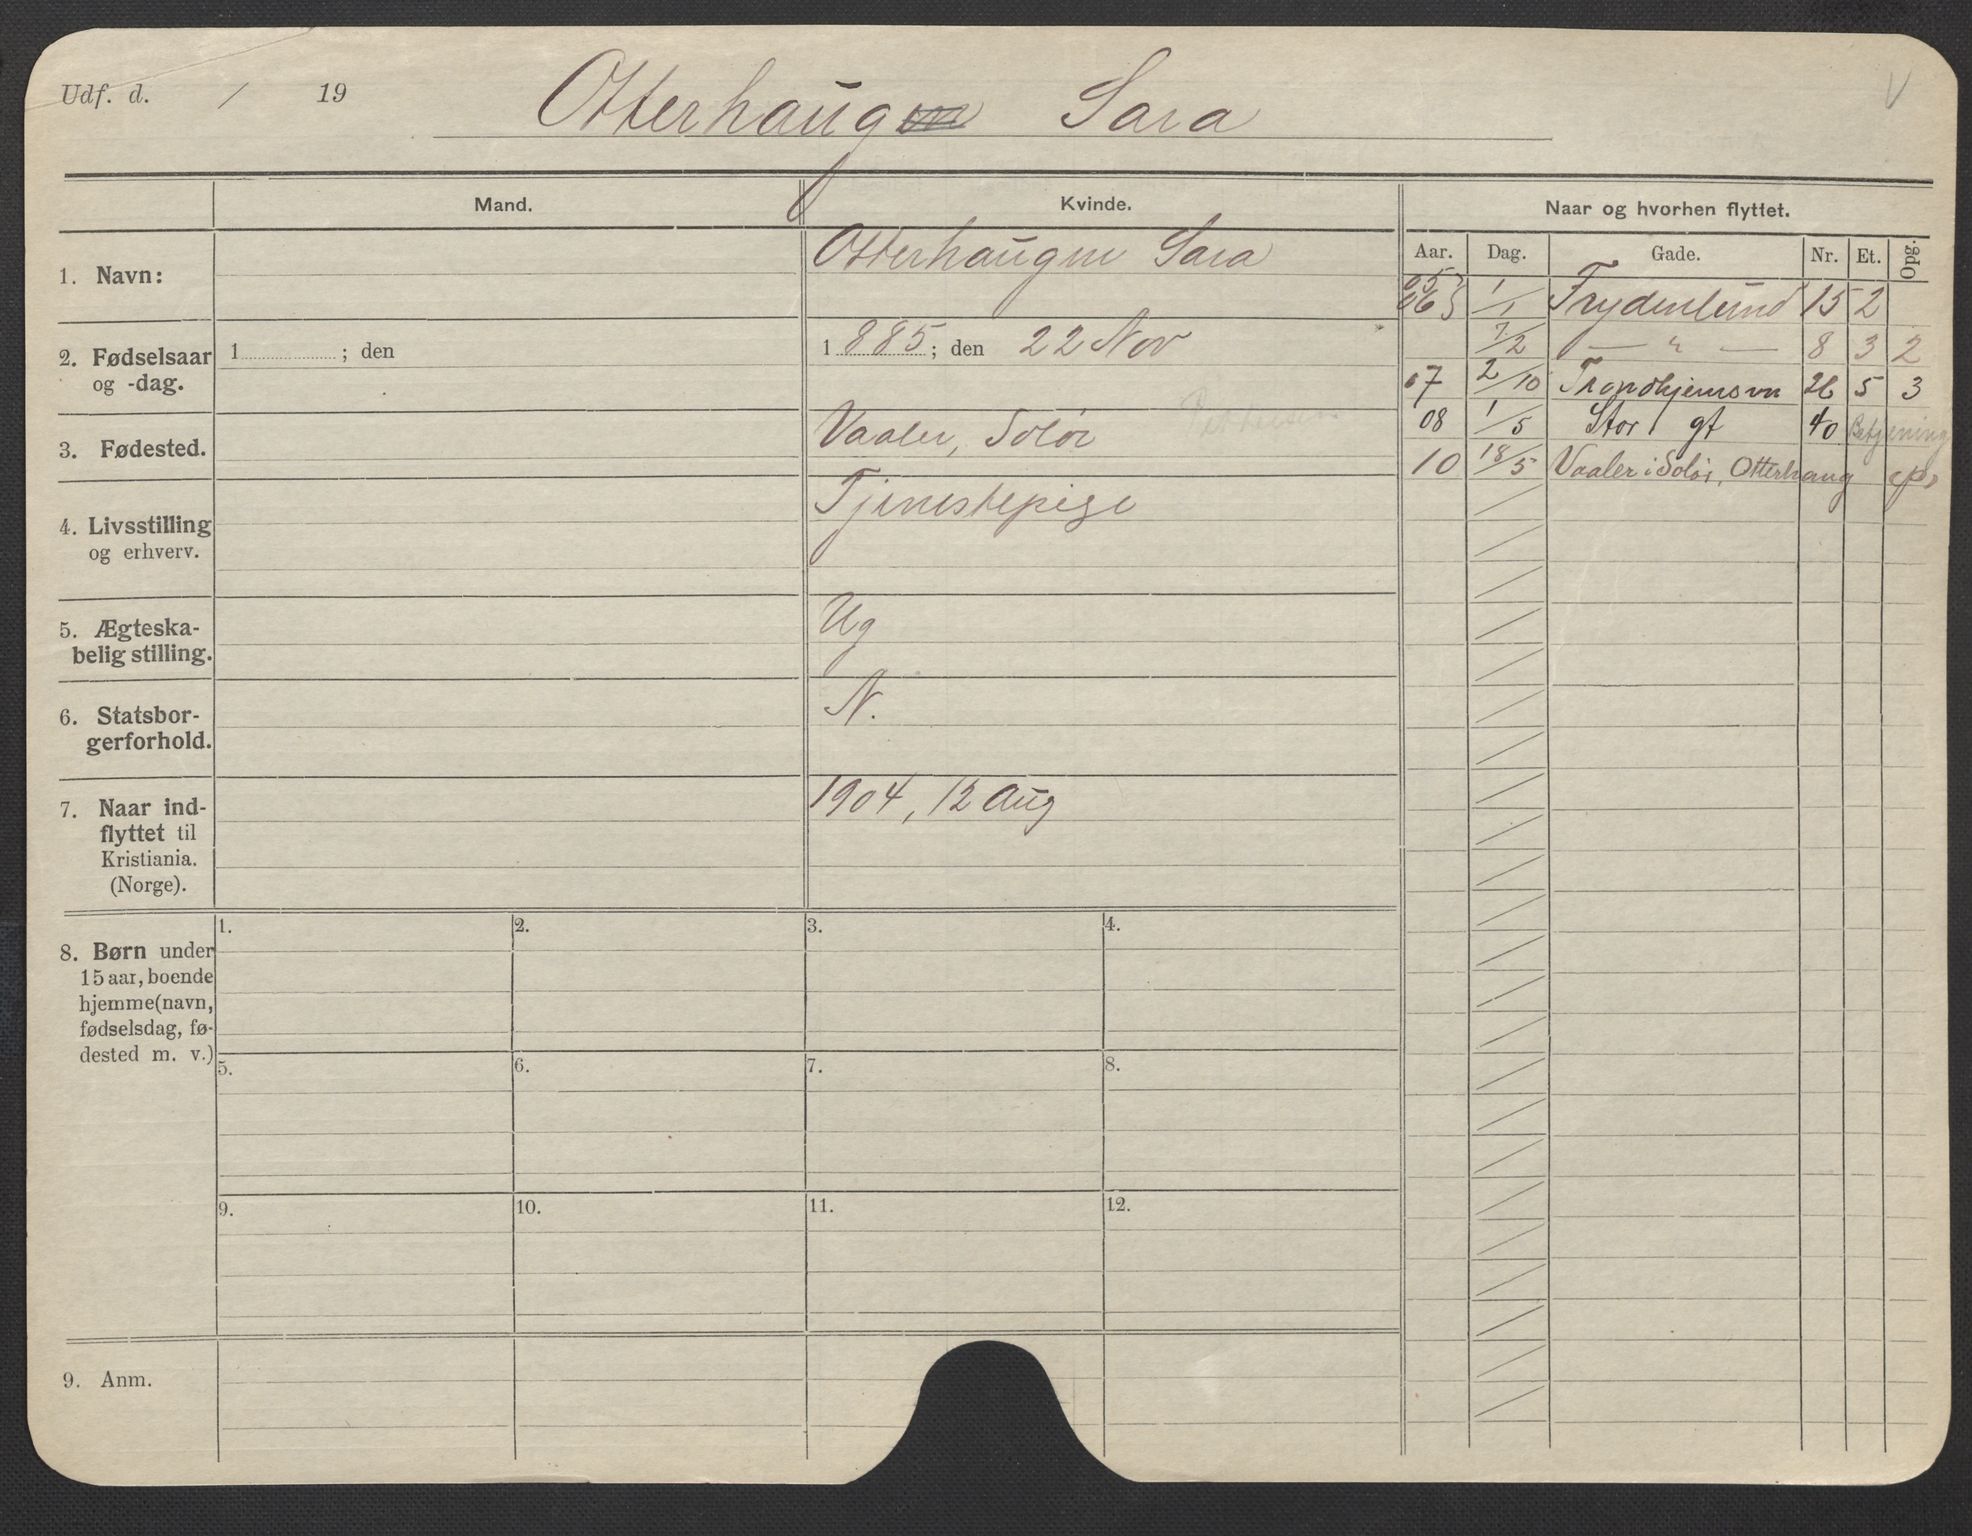 Udf. d. / 19
Otterhaugen Sara
V
Mand.
Kvinde.
Naar og hvorhen flyttet.
Aar. Dag. Gade. Nr. Et. Opg.
1. Navn:
Otterhaugen Sara
2. Fødselsaar
og -dag.
1 ; den
1885; den 22 Nov
3. Fødested.
Vaaler, Solør
4. Livsstilling
og erhverv.
Tjenestepige
5. Ægteska-
belig stilling.
Ug
6. Statsbor-
gerforhold.
N.
7. Naar ind-
flyttet til
Kristiania.
(Norge).
1904, 12 Aug
05
06 1/1 Frydenlund 15 2
7/2 — " — 8 3 2
07 2/10 Trondhjemsvn 26 5 3
08 1/5 Stor gt 40 Betjening
10 18/5 Vaaler i Solør, Otterhaug
8. Børn under
15 aar, boende
hjemme (navn,
fødselsdag, fø-
dested m. v.)
1. 2. 3. 4.
5. 6. 7. 8.
9. 10. 11. 12.
9. Anm.